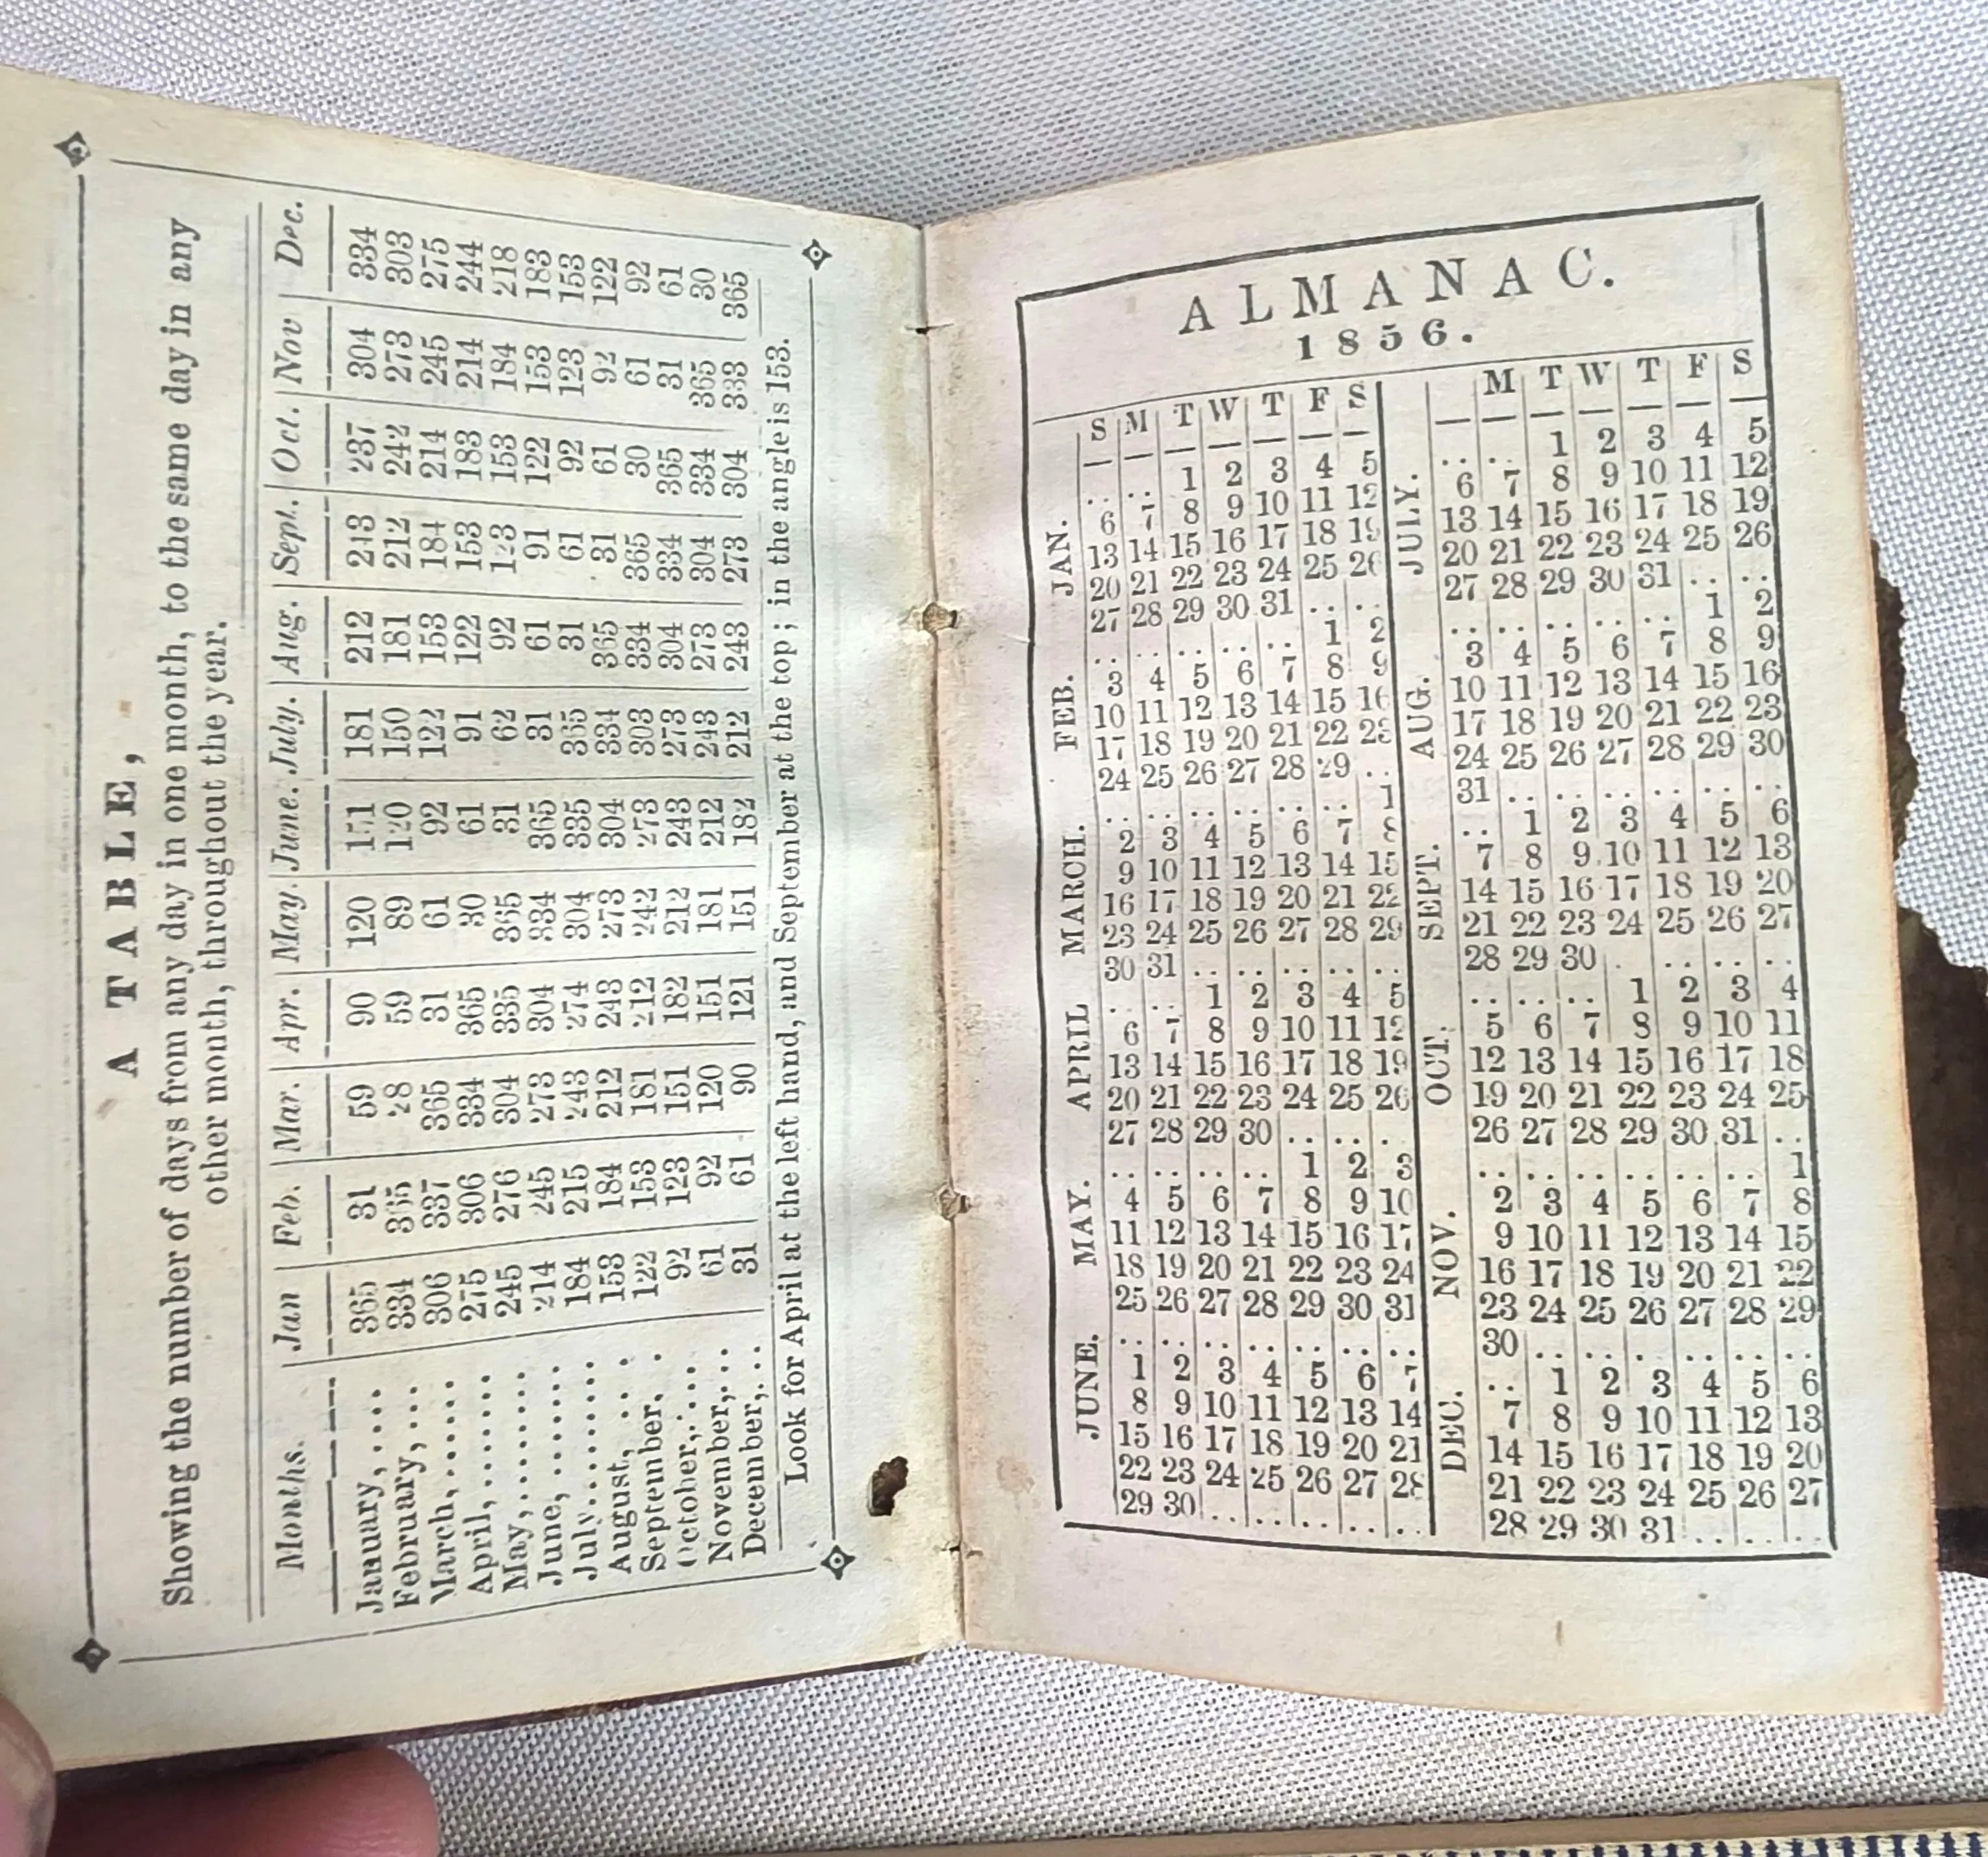 A TABLE,
Showing the number of days from any day in one month, to the same day in any
other month, throughout the year.
Months. Jan Feb. Mar. Apr. May. June. July. Aug. Sept. Oct. Nov Dec.
January,.... 365 31 59 90 120 151 181 212 243 237 304 334
February,... 334 365 28 59 89 120 150 181 212 242 273 303
March,...... 306 337 365 31 61 92 122 153 184 214 245 275
April,....... 275 306 334 365 30 61 91 122 153 183 214 244
May,........ 245 276 304 335 365 31 62 92 123 153 184 218
June,....... 214 245 273 304 334 365 31 61 91 122 153 183
July......... 184 215 243 274 304 335 365 31 61 92 123 153
August,.... 153 184 212 243 273 304 334 365 31 61 92 122
September. . 122 153 181 212 242 273 303 334 365 30 61 92
October,.... 92 123 151 182 212 243 273 304 334 365 31 61
November,... 61 92 120 151 181 212 243 273 304 334 365 30
December,... 31 61 90 121 151 182 212 243 273 304 333 365
Look for April at the left hand, and September at the top; in the angle is 153.
ALMANAC.
1856.
S M T W T F S
JAN.
.. .. 1 2 3 4 5
6 7 8 9 10 11 12
13 14 15 16 17 18 19
20 21 22 23 24 25 26
27 28 29 30 31 .. ..
FEB.
.. .. .. .. .. 1 2
3 4 5 6 7 8 9
10 11 12 13 14 15 16
17 18 19 20 21 22 23
24 25 26 27 28 29 ..
MARCH.
.. .. .. .. .. .. 1
2 3 4 5 6 7 8
9 10 11 12 13 14 15
16 17 18 19 20 21 22
23 24 25 26 27 28 29
30 31 .. .. .. .. ..
APRIL
.. .. 1 2 3 4 5
6 7 8 9 10 11 12
13 14 15 16 17 18 19
20 21 22 23 24 25 26
27 28 29 30 .. .. ..
MAY.
.. .. .. .. 1 2 3
4 5 6 7 8 9 10
11 12 13 14 15 16 17
18 19 20 21 22 23 24
25 26 27 28 29 30 31
JUNE.
.. .. .. .. .. .. ..
1 2 3 4 5 6 7
8 9 10 11 12 13 14
15 16 17 18 19 20 21
22 23 24 25 26 27 28
29 30 .. .. .. .. ..
M T W T F S
JULY.
.. .. 1 2 3 4 5
6 7 8 9 10 11 12
13 14 15 16 17 18 19
20 21 22 23 24 25 26
27 28 29 30 31 .. ..
AUG.
.. .. .. .. .. 1 2
3 4 5 6 7 8 9
10 11 12 13 14 15 16
17 18 19 20 21 22 23
24 25 26 27 28 29 30
31 .. .. .. .. .. ..
SEPT.
.. 1 2 3 4 5 6
7 8 9 10 11 12 13
14 15 16 17 18 19 20
21 22 23 24 25 26 27
28 29 30 . .. .. ..
OCT.
.. .. .. 1 2 3 4
5 6 7 8 9 10 11
12 13 14 15 16 17 18
19 20 21 22 23 24 25
26 27 28 29 30 31 ..
NOV.
.. .. .. .. .. .. 1
2 3 4 5 6 7 8
9 10 11 12 13 14 15
16 17 18 19 20 21 22
23 24 25 26 27 28 29
30 .. .. .. .. .. ..
DEC.
.. 1 2 3 4 5 6
7 8 9 10 11 12 13
14 15 16 17 18 19 20
21 22 23 24 25 26 27
28 29 30 31 .. .. ..